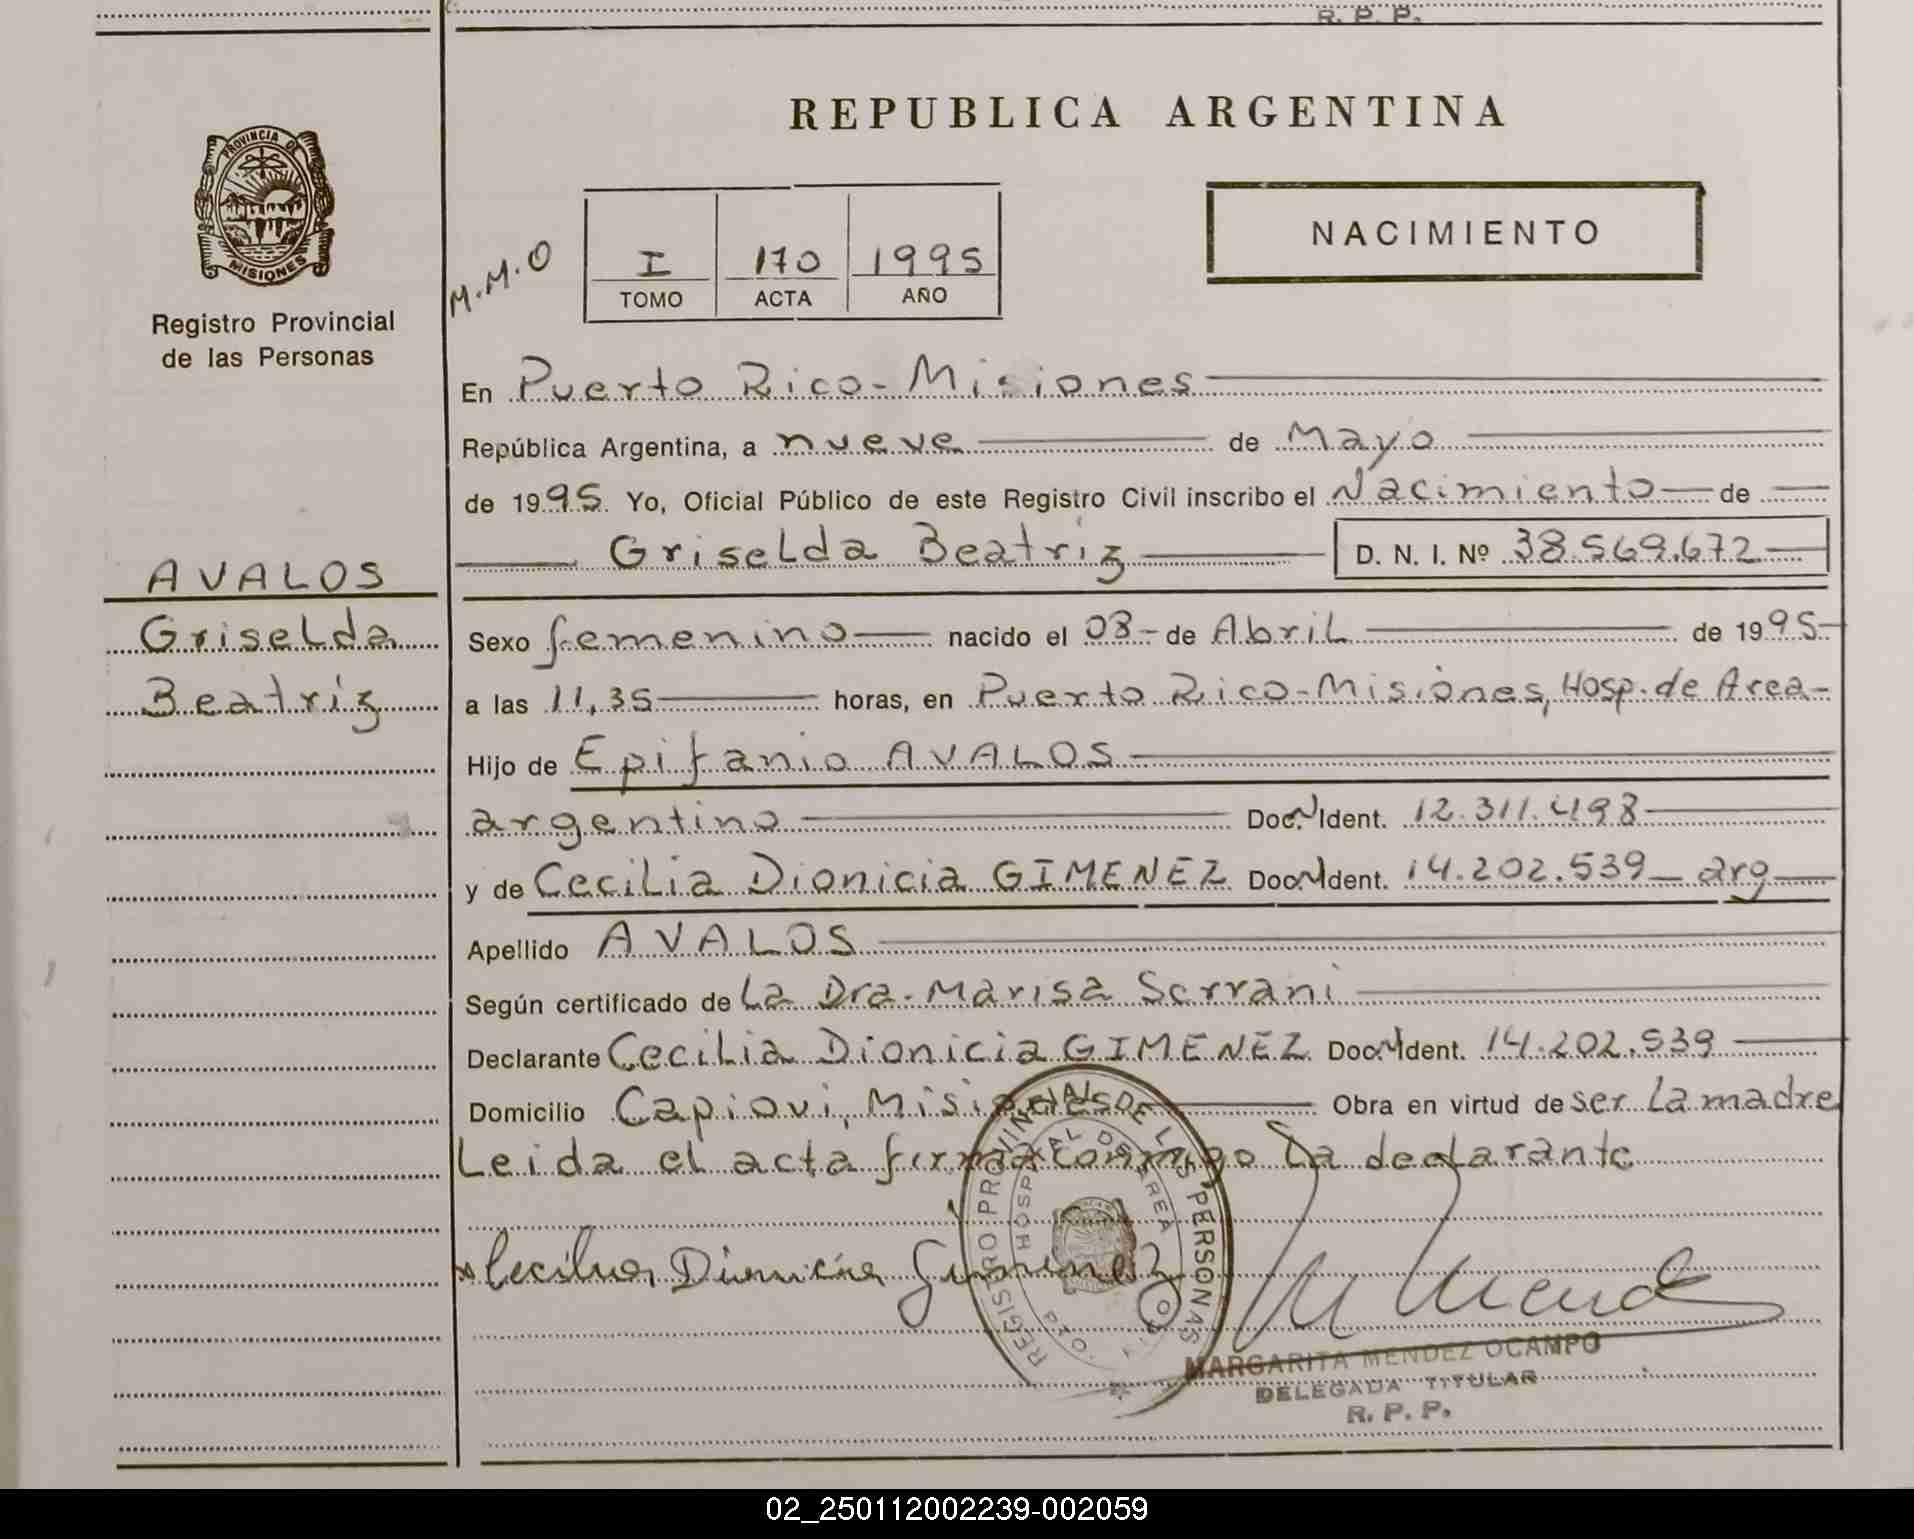 R. P. P.
REPUBLICA ARGENTINA
PROVINCIA DE
MISIONES
Registro Provincial
de las Personas
M.M.O
I 170 1995
TOMO ACTA AÑO
NACIMIENTO
En Puerto Rico-Misiones
República Argentina, a nueve de Mayo
de 1995. Yo, Oficial Público de este Registro Civil inscribo el Nacimiento de
Griselda Beatriz D. N. I. Nº 38.569.672
AVALOS
Griselda
Beatriz
Sexo femenino nacido el 03 de Abril de 1995
a las 11,35 horas, en Puerto Rico-Misiones, Hosp. de Area-
Hijo de Epifanio AVALOS
argentino Doc. N Ident. 12.311.498
y de Cecilia Dionicia GIMENEZ Doc. N Ident. 14.202.539 arg
Apellido AVALOS
Según certificado de la Dra. Marisa Serrani
Declarante Cecilia Dionicia GIMENEZ Doc. N Ident. 14.202.539
Domicilio Capiovi, Misiones Obra en virtud de ser la madre
Leida el acta firma conmigo la declarante
Cecilia Dionicia Gimenez
REGISTRO PROVINCIAL DE LAS PERSONAS
HOSPITAL DE AREA
PTO. RICO
M Mendez
MARGARITA MENDEZ OCAMPO
DELEGADA TITULAR
R. P. P.
02_250112002239-002059